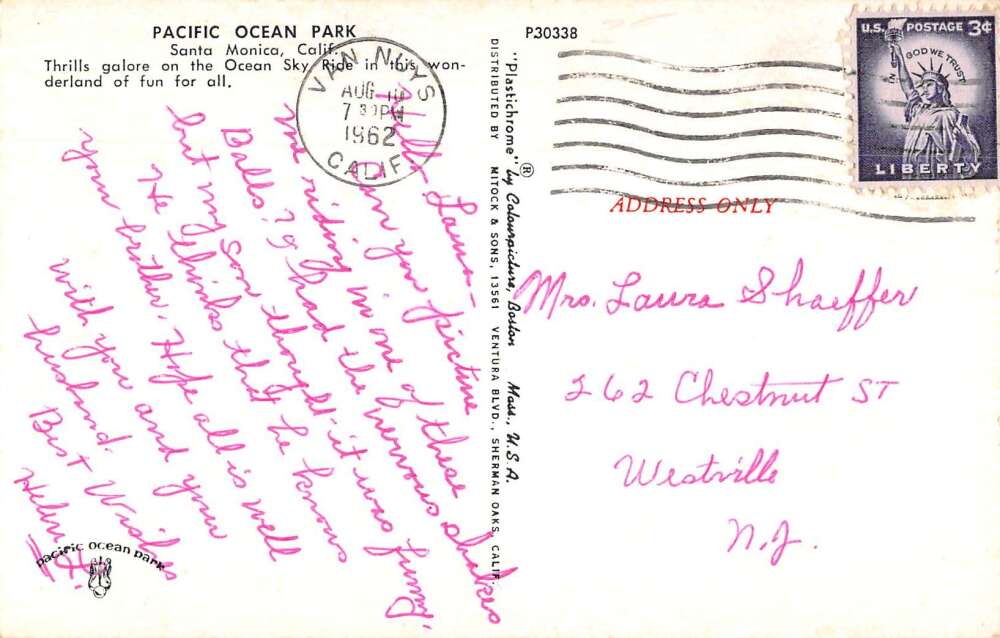 PACIFIC OCEAN PARK
Santa Monica, Calif.
Thrills galore on the Ocean Sky Ride in this won-
derland of fun for all.
VAN NUYS
AUG 10
7 30PM
1962
CALIF.
Hello Laura -
Can you picture
me riding in one of these
Balls? I had the nervous shakes
but my son thought it was funny.
He thinks that he knows
your brother. Hope all is well
with you and your
husband.
Best Wishes
Helen H.
pacific ocean park
P30338
"Plastichrome" ® by Colourpicture, Boston Mass., U.S.A.
DISTRIBUTED BY MITOCK & SONS, 13561 VENTURA BLVD., SHERMAN OAKS, CALIF.
U.S. POSTAGE 3¢
IN GOD WE TRUST
LIBERTY
ADDRESS ONLY
Mrs. Laura Shaeffer
262 Chestnut ST
Westville
N.J.